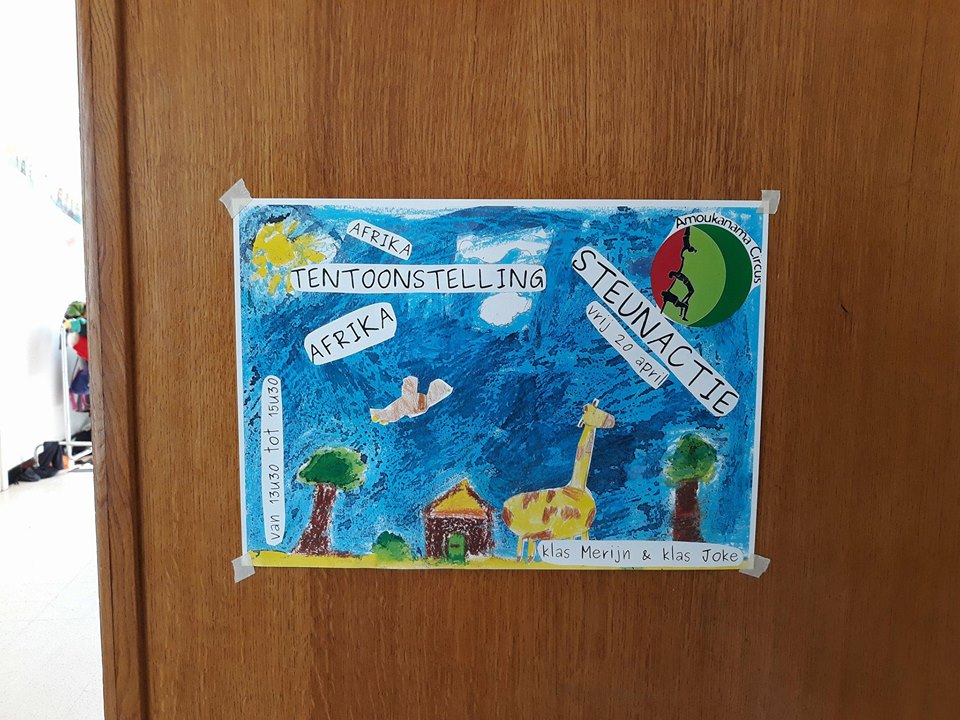 AFRIKA
TENTOONSTELLING
AFRIKA
Amoukanama Circus
STEUNACTIE
vrij 20 april
van 13u30 tot 15u30
klas Merijn & klas Joke